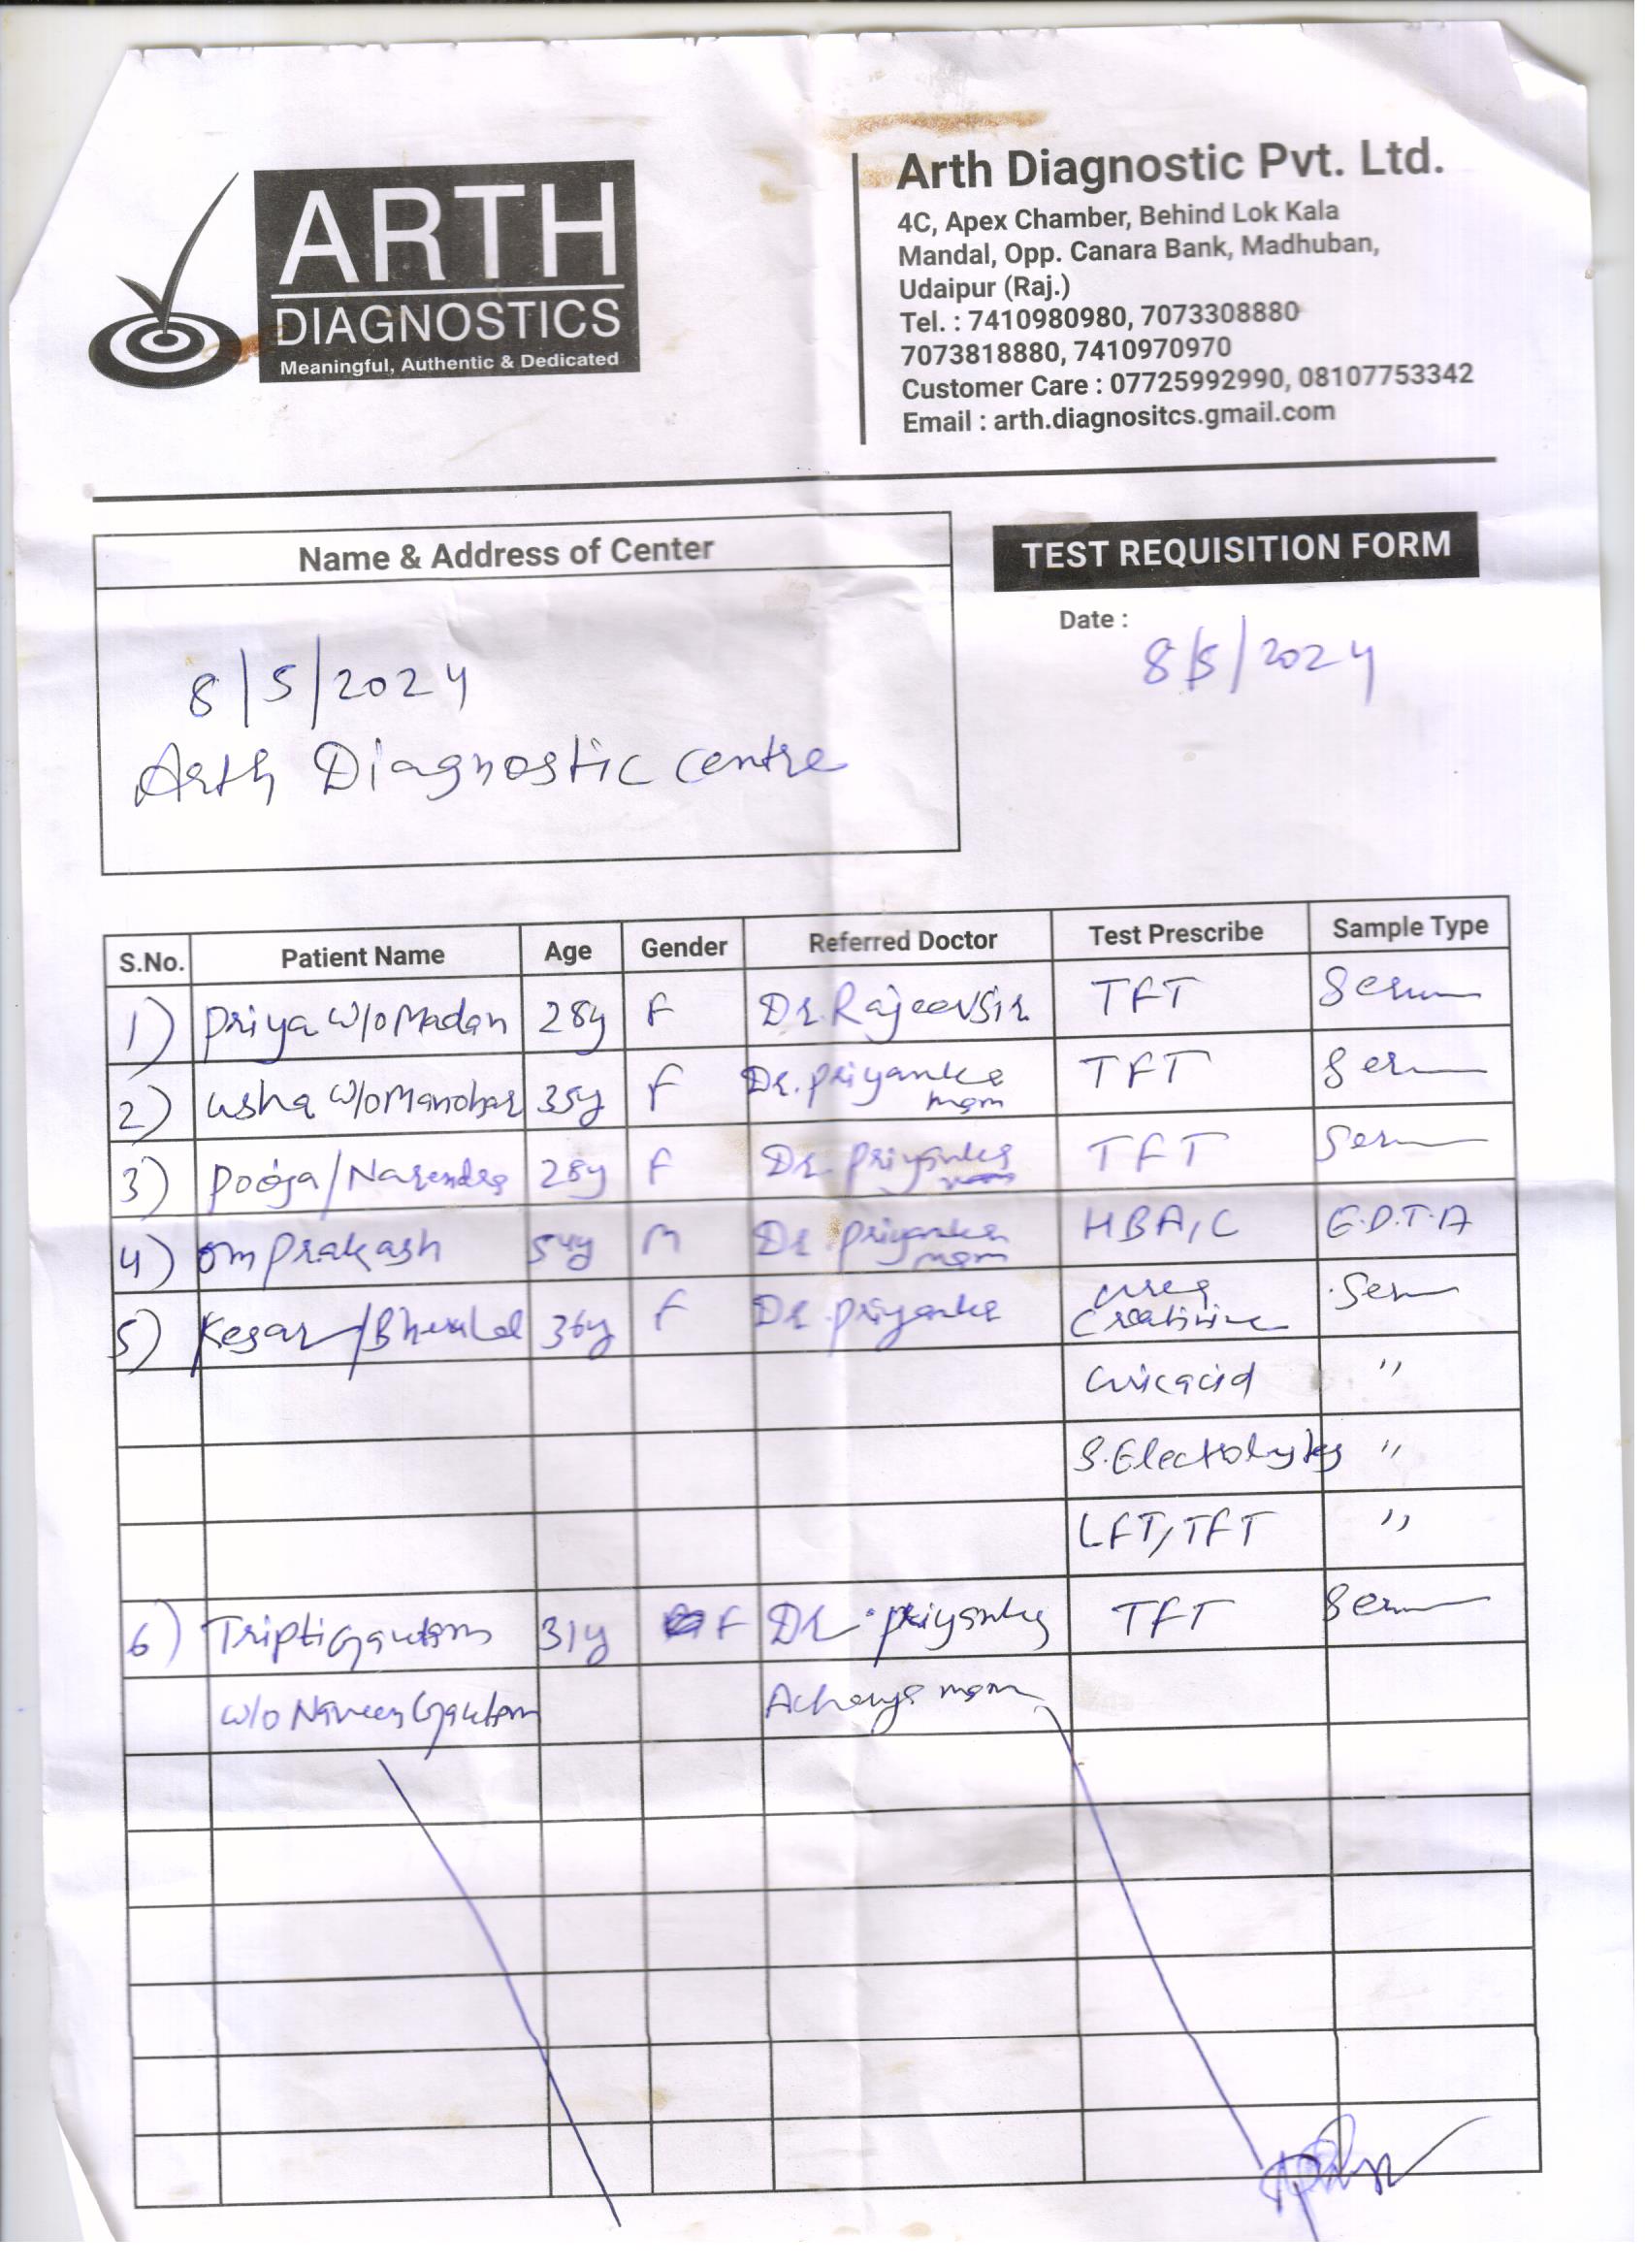 ARTH
DIAGNOSTICS
Meaningful, Authentic & Dedicated
Arth Diagnostic Pvt. Ltd.
4C, Apex Chamber, Behind Lok Kala
Mandal, Opp. Canara Bank, Madhuban,
Udaipur (Raj.)
Tel. : 7410980980, 7073308880
7073818880, 7410970970
Customer Care : 07725992990, 08107753342
Email : arth.diagnositcs.gmail.com
Name & Address of Center
8/5/2024
Arth Diagnostic centre
TEST REQUISITION FORM
Date :
8/5/2024
S.No. Patient Name Age Gender Referred Doctor Test Prescribe Sample Type
1) Priya W/o Madan 28y F Dr. Rajeev Sir TFT Serum
2) Usha W/o Manohar 35y F Dr. Priyanka mam TFT Serum
3) Pooja/Narendra 28y F Dr. Priyanka mam TFT Serum
4) Om Prakash 54y M Dr. Priyanka mam HBA1C E.D.T.A
5) Kesar/Bherulal 36y F Dr. Priyanka Urea Creatinine Serum
Uric acid "
S. Electrolytes "
LFT/TFT "
6) Tripti Gautam 31y F Dr. Priyanka TFT Serum
W/o Naveen Gautam Acharya mam